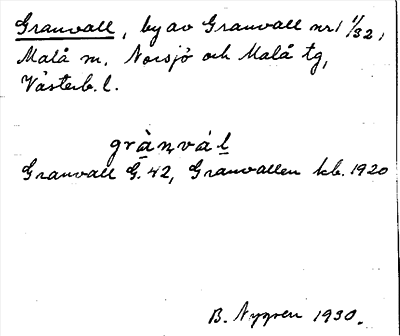 Granvall, by av Granvall nr 1 1/32,
Malå sn, Norsjö och Malå tg,
Västerb. l.
grànvál
Granvall G. 42, Granvallen kb. 1920
B. Nygren 1930.